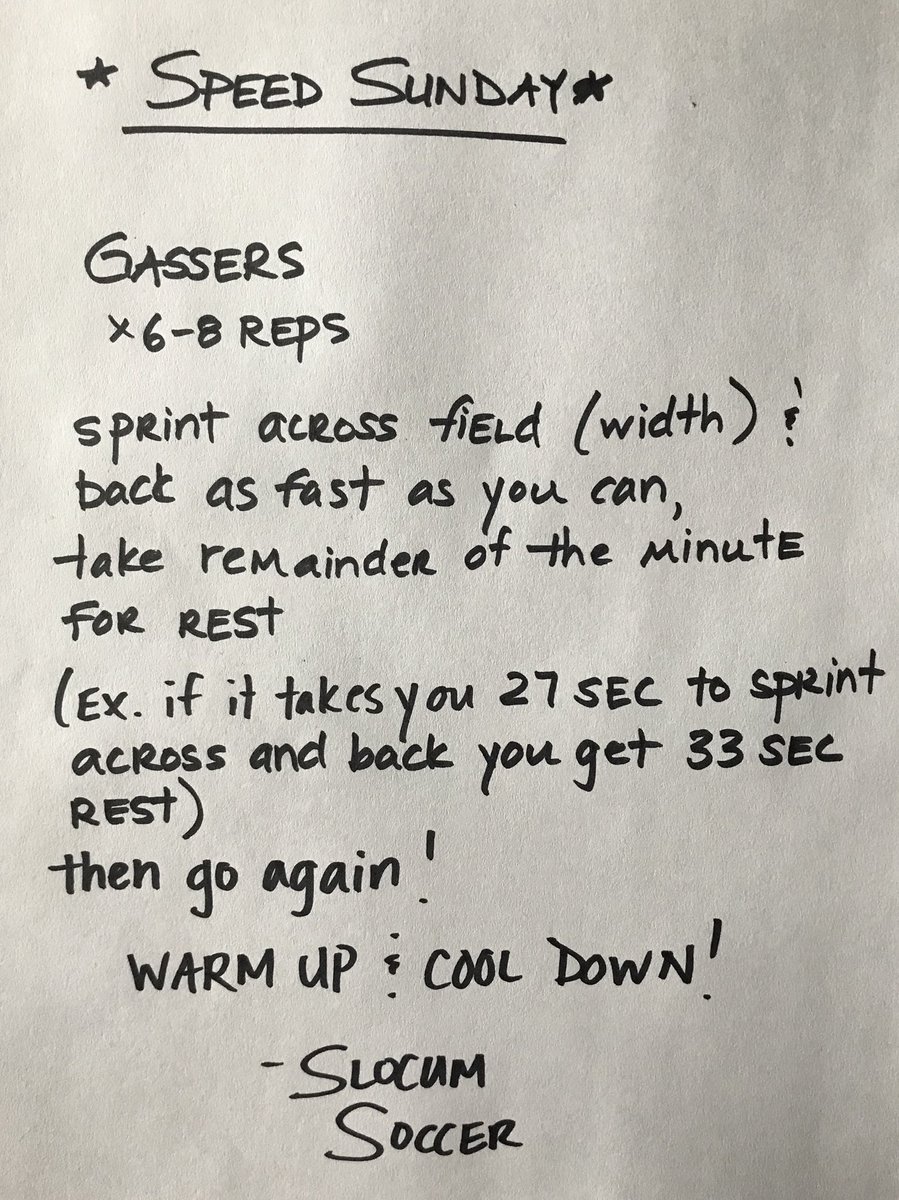 * SPEED SUNDAY *
GASSERS
x 6-8 REPS
sprint across field (width) &
back as fast as you can,
take remainder of the minute
for rest
(Ex. if it takes you 27 sec to sprint
across and back you get 33 sec
rest)
then go again!
WARM UP & COOL DOWN!
- SLOCUM
SOCCER